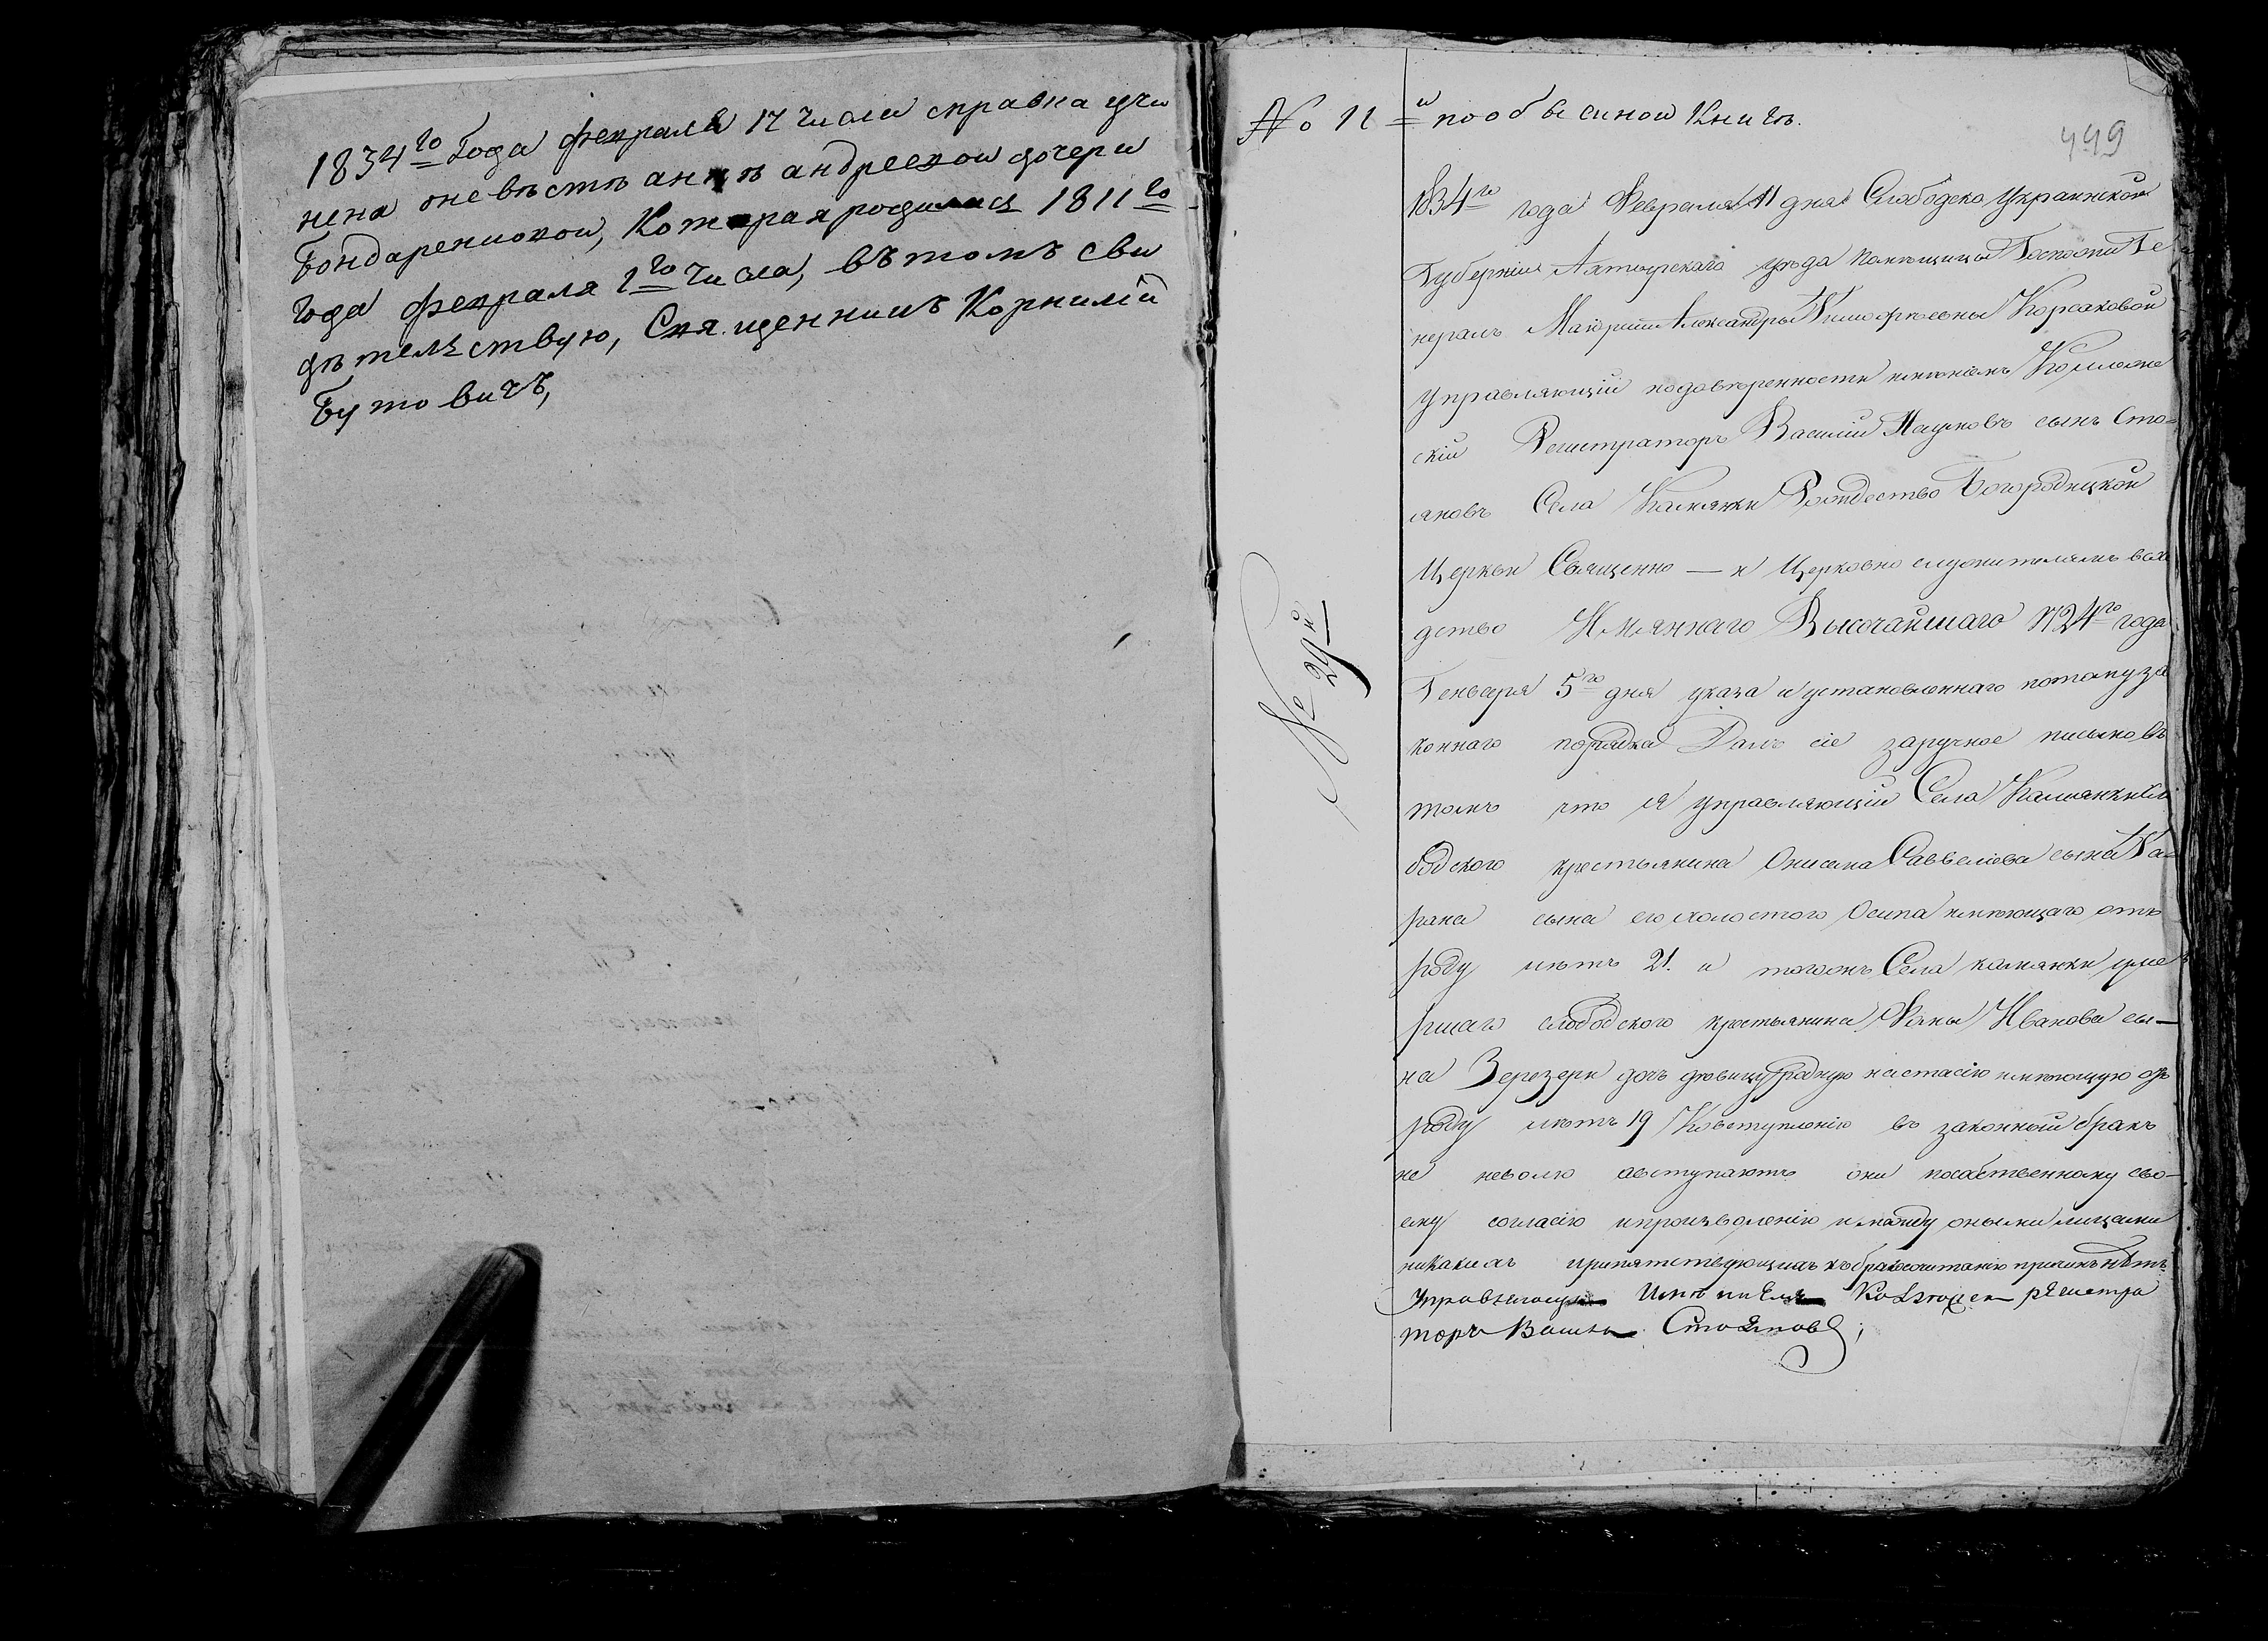 1834го Года февраля 17 числа справка учи
нена оневѣстѣ аннѣ андреевои дочери
Бондаренковои, Которая родилась 1811го
Года февраля 1го Числа, въ томъ сви
дѣтельствую, Священникъ Корнилій
Бутовичъ,
No 11й по обыскнои Книгѣ.
449
1834го года Февраля 11 дня Слободско Украинской
Губерніи Ахтырскаго уѣзда помѣщицы Госпожи Ге
нералъ Маіорши Александры Тимофѣевны Корсаковой
управляющій подовѣренности имѣніемъ Коллеже
скій Регистраторъ Василій сынъ Сто=
яновъ Села Камянки Рождество Богородицкой
Церкви Священно — и Церковно служителямъ вслѣ
дство Имяннаго Высочайшаго 1724го года
Генваря 5го дня указа и установленнаго потому за
коннаго порядка Далъ сіе заручное письмо въ
томъ что я управляющій Села Камянки сло
бодского крестьянина Онисима Савелiева сына Та=
рана сына его холостого Осипа имѣющаго отъ
роду лѣтъ 21. и тогожъ Села камянки уме
ршаго слободского крестьянина Фомы Иванова сы—
на дочъ дѣвицу родную настасію имѣющую отъ
роду лѣтъ 19 Ковступленію въ законный бракъ
не неволю авступаютъ они пособственному сво—
ему согласію ипроизволенію имежду оными лицами
никакихъ припятствующихъ кбракосочитанію причинъ нѣтъ
Управляющи Имѣниемъ Коллежен регистра
торъ Василь Стояновъ;
№ 29й